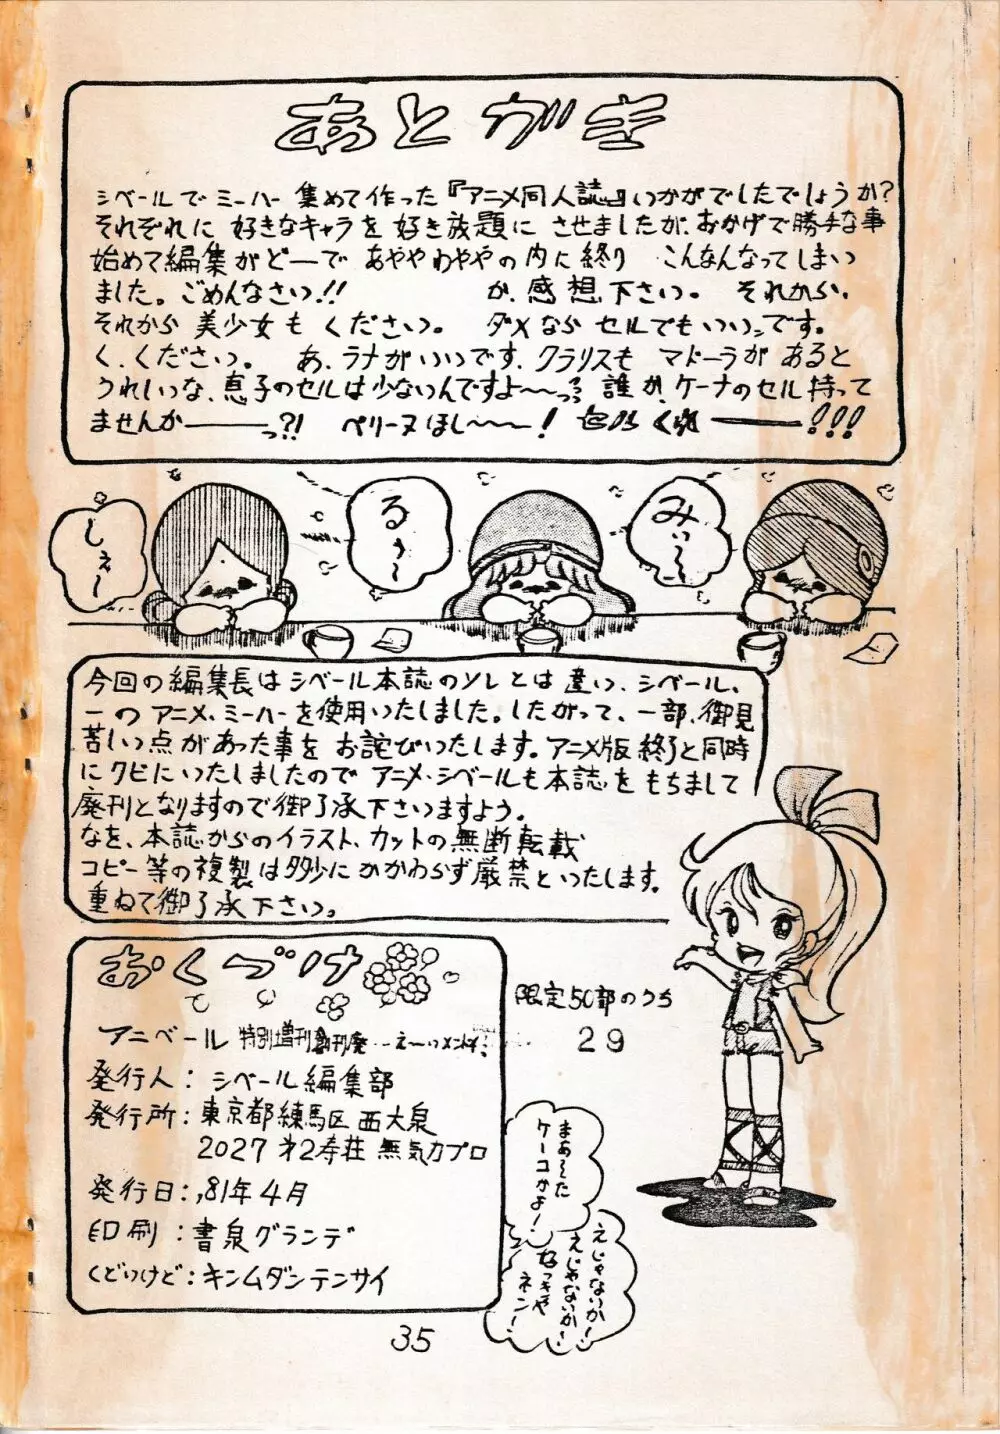 あとがき
シベールでミーハー集めて作った『アニメ同人誌』いかがでしたでしょうか?
それぞれに好きなキャラを好き放題にさせましたが、おかげで勝手な事
始めて編集がどーで あややわややの内に終り こんなんなってしまい
ました。ごめんなさいっ!! が、感想下さい。 それから、
それから 美少女も ください。 ダメなら セルでもいいンです。
く、ください。 あ、ラナがいいです、クラリスも マドーラが あると
うれしいな、恵子のセルは少ないんですよ〜〜っ 誰か、ケーナのセル持って
ませんか———っ?! ペリーヌほし〜〜〜! セルくれ———!!!
しぇ〜
るぅ〜〜
みぃ〜〜
今回の編集長はシベール本誌のソレとは違い、シベール、
一のアニメ・ミーハーを使用いたしました。したがって、一部、御見
苦しい点があった事をお詫びいたします。アニメ版終了と同時
にクビにいたしましたのでアニメ・シベールも本誌をもちまして
廃刊となりますので御了承下さいますよう。
なを、本誌からのイラスト、カットの無断転載
コピー等の複製は多少にかかわらず厳禁といたします。
重ねて御了承下さい。
おくづけ
アニベール 特別増刊創刊廃
発行人:シベール編集部
発行所:東京都練馬区西大泉
2027 才2寿荘 無気力プロ
発行日:,81年4月
印刷:書泉グランデ
くどいけど:キンムダンテンサイ
限定50部のうち
29
まぁ〜た
ケーコかよ!
えじゃないか!
えじゃないか!
なっきゃ
ネン!
35